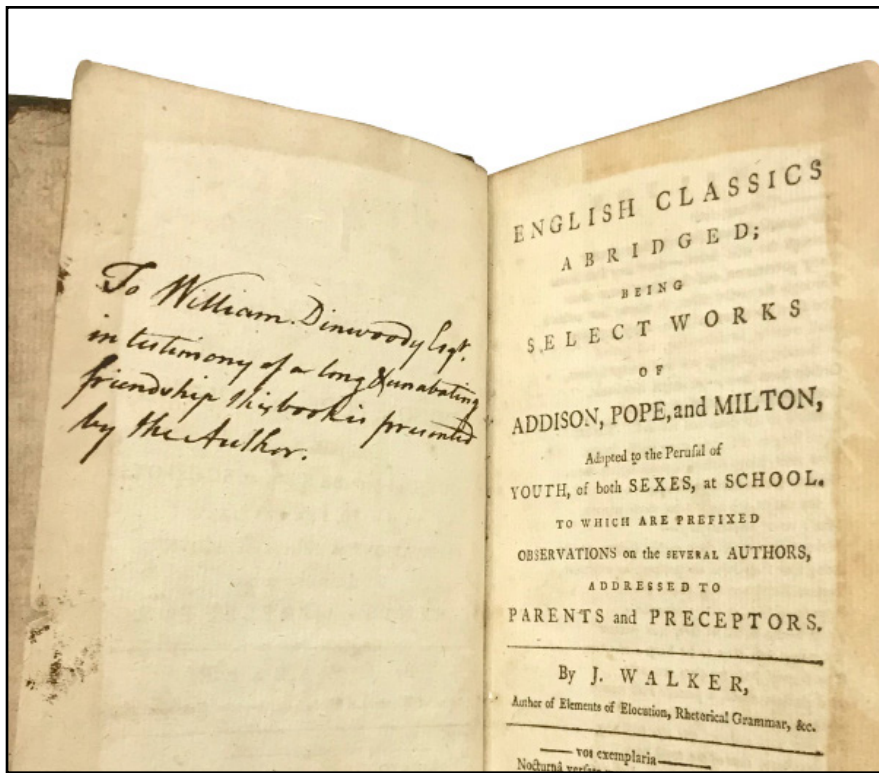 To William Dinwoody Esqr.
in testimony of a long & unabating
friendship this book is presented
by the Author.
ENGLISH CLASSICS
ABRIDGED;
BEING
SELECT WORKS
OF
ADDISON, POPE, and MILTON,
Adapted to the Perusal of
YOUTH, of both SEXES, at SCHOOL.
TO WHICH ARE PREFIXED
OBSERVATIONS on the SEVERAL AUTHORS,
ADDRESSED TO
PARENTS and PRECEPTORS.
By J. WALKER,
Author of Elements of Elocution, Rhetorical Grammar, &c.
—— vos exemplaria ——
Nocturnâ